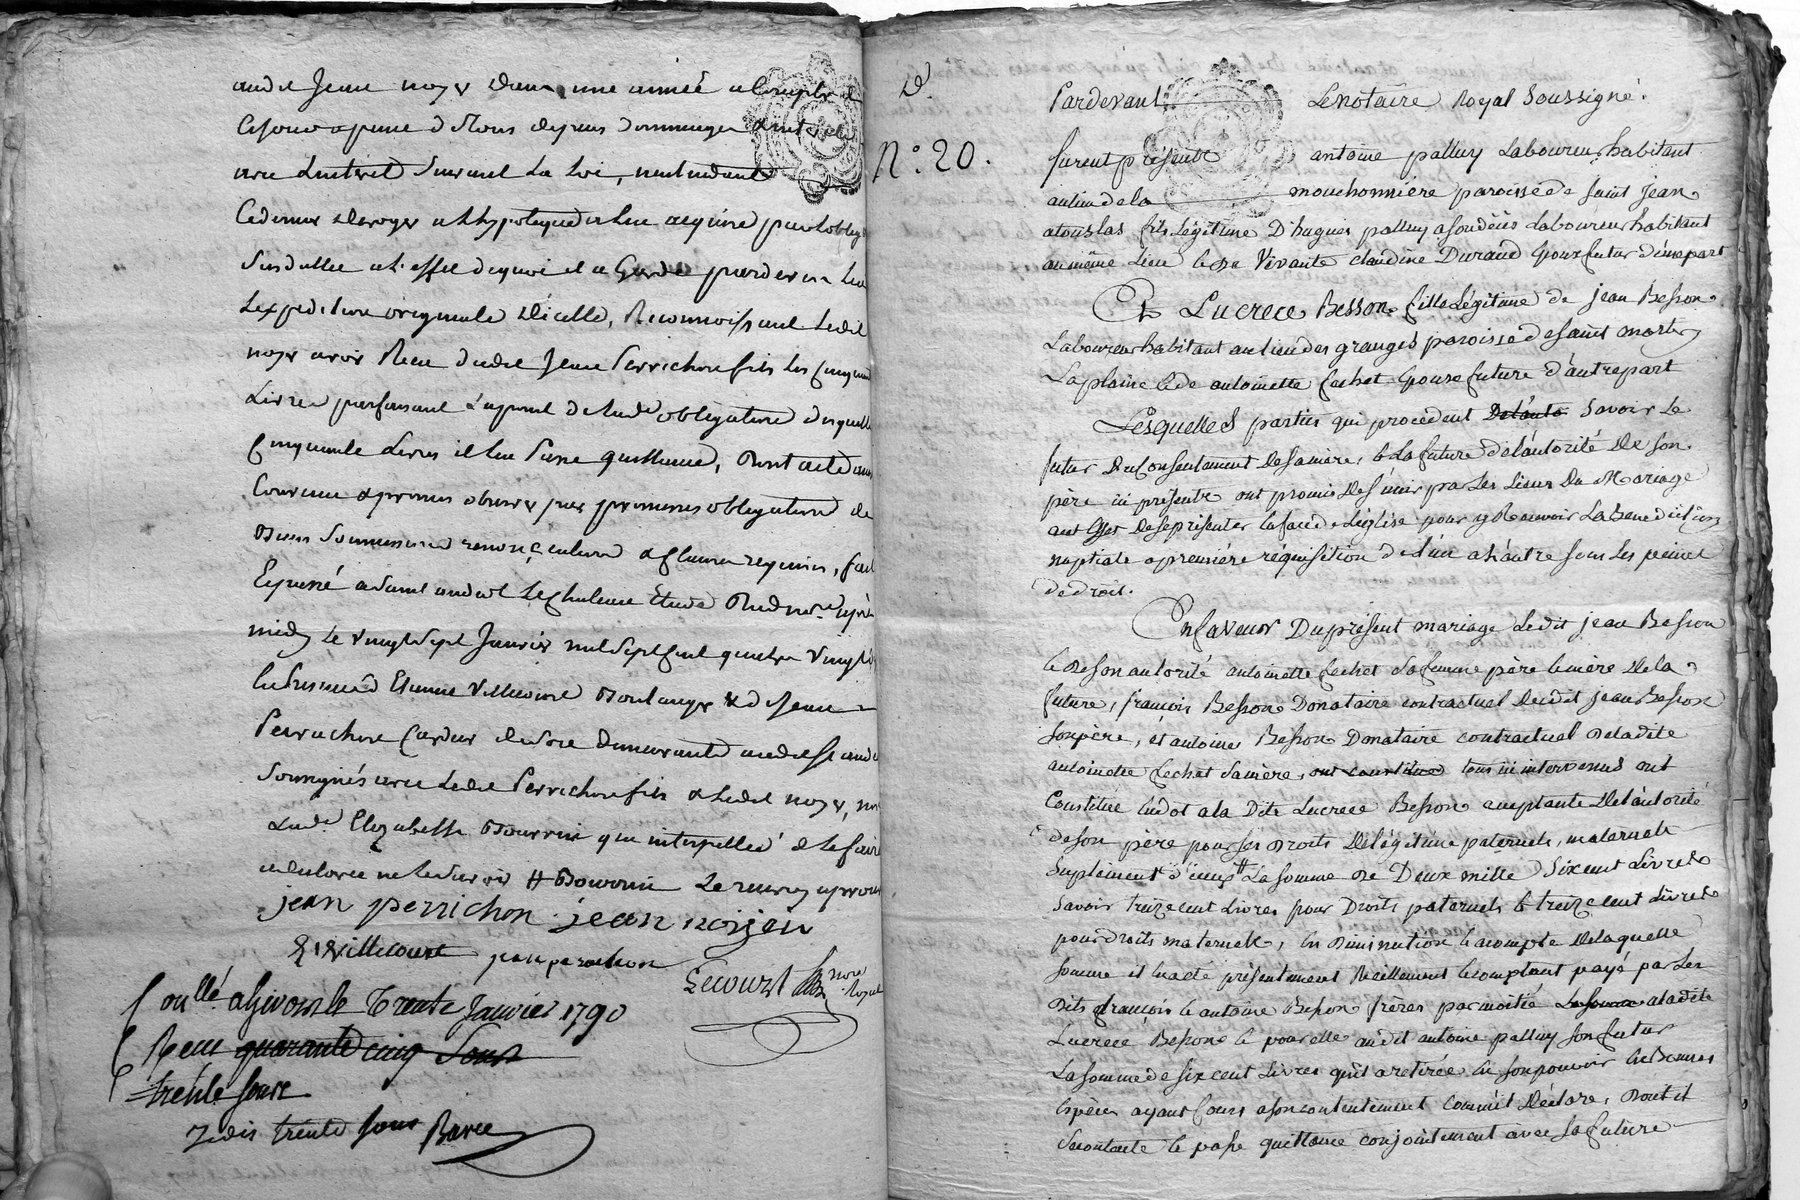 audit Jean noyer dans une année a Compter de
Ce jour a peine de tous depens dommages
avec Linteret Suivant La Loi, nentendant
Ceder ny deroger a L'hypoteque a lui acquise par lobligation
Susdatée a l'effet de quoi il a Gardé pardevers lui
Lexpedition originale dicelle, Reconnoissant Ledit
noyer avoir Reçu dudit Jean Perrichon fils les Cinquante
Livres parfaisant Lapoint de ladte obligation desquelles
Cinquante Livres il lui Passe quittance, Dont acte ainsi
Convenu & promis observer par promesses obligation de
Biens Soumissions renonciations & clauses requises, fait
& passé a
midy Le vingt sept Janvier mil Sept Cent quatre vingt dix
En Presence d'Etienne Villecourt Boulanger & de Jean
Perrachon Cardeur de Soie demeurants
Soussignés avec Ledit Perrichon fils & Ledit noyer, non
Lade Elizabeth Bourrin qui interpellée de le faire
a declaré ne le Savoir # Bourrin Le renvoy approuvé
jean perrichon. jean noyer
E Villecourt jean perachon
Lecourt nore Royal
Conllé a Givors le Trente Janvier 1790
Recu quarante cinq Sous
trente sous
Je dis trente sous Barce
N.° 20.
Pardevant Le notaire Royal Soussigné.
furent présents antoine palluy Laboureur habitant
au lieu de la mouchonnière paroisse de Saint jean
a touslas fils Légitime D'hugues palluy a son décès Laboureur habitant
au même Lieu & De Vivante claudine Durand Epoux futur d'une part
Et Lucrece Besson fille Légitime de jean Besson
Laboureur habitant au lieu des granges paroisse de saint martin
La plaine & de antoinette fechet Epouse future d'autre part
Lesquelles parties qui procedent De l'auto Savoir Le
futur Du Consentement De sa mère, & La future de l'autorité De son
père ici présents ont promis De s'unir par Les Liens Du Mariage
aux effet De se présenter en face de L'église pour y Recevoir La benediction
nuptiale a première réquisition de l'un a l'autre sous Les peines
de droit.
En faveur Du présent mariage Ledit jean Besson
& De son autorité antoinette fechet Sa femme père & mère De la
future, françois Besson Donataire contractuel Dudit jean Besson
Son père, et antoine Besson Donataire contractuel De ladite
antoinette fechet Sa mère, ont constitué tous ici intervenus ont
Constitué En dot a la Dite Lucrece Besson acceptante De l'autorité
de son père pour ses Droits De légitime paternels, maternels
Suplement d'iceux La somme De Deux mille Six cent Livres
Savoir treize cent Livres pour Droits paternels & treize cent Livres
pour droits maternels, En Diminution & acompte De laquelle
Somme il En a été présentement Réellement & comptant payé par Les
Dits françois & antoine Besson frères par moitié La somme a ladite
Lucrece Besson & pour elle audit antoine palluy Son futur
La somme de six cent Livres qu'il a retirée En son pouvoir En Bonnes
Espèces ayant Cours a son contentement comm'il Déclare, Dont il
Se contente & passe quittance conjointement avec Sa future